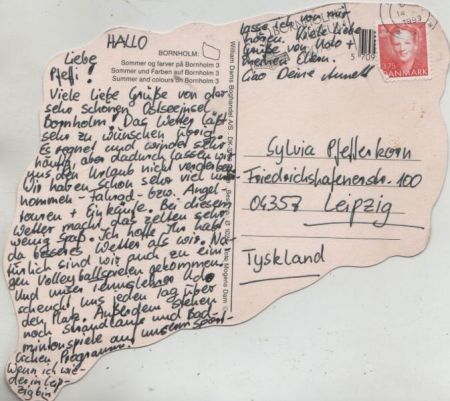 HALLO
Liebe
Pfeffi!
Viele liebe Grüße von der
sehr schönen Ostseeinsel
Bornholm! Das Wetter läßt
sehr zu wünschen übrig.
Es regnet und windet sehr
häufig, aber dadurch lassen wir
uns den Urlaub nicht verderben.
Wir haben schon sehr viel unter-
nommen - Fahrrad- bzw. Angel-
touren + Einkäufe. Bei diesem
Wetter macht das zelten sehr
wenig Spaß. Ich hoffe Ihr habt
da besseres Wetter als wir. Na-
türlich sind wir auch zu eini-
gen Volleyballspielen gekommen
und unser Tennislehrer
scheucht uns jeden Tag über
den Platz. Außerdem stehen
noch Strandläufe und Bad-
mintonspiele auf unserem sport-
lichen Programm.
Wenn ich wie-
der in Leip-
zig bin
lasse ich von mir
hören. Viele liebe
Grüße von
meinen Eltern.
Ciao Deine Annett
BORNHOLM:
Sommer og farver på Bornholm 3
Sommer und Farben auf Bornholm 3
Summer and colours on Bornholm 3
William Dams Boghandel A/S
Mogens Dam
BORNHOLM
5 709
14
1993
3.75
DANMARK
Sylvia Pfefferkorn
Friedrichshafenerstr. 100
04357 Leipzig
Tyskland